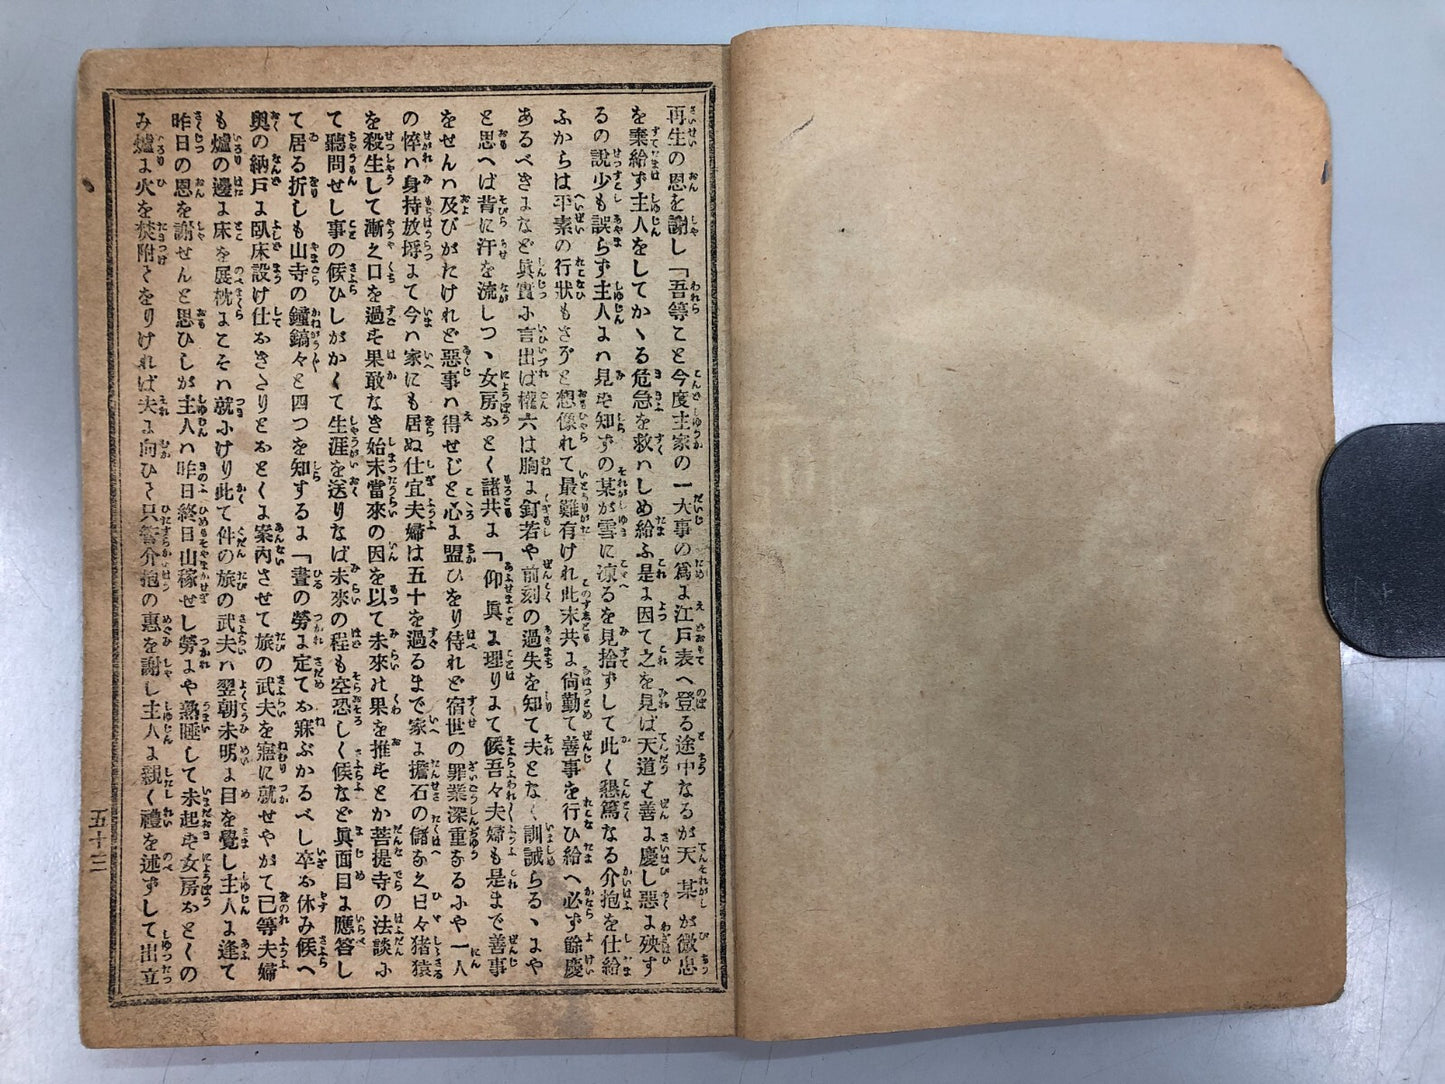 再生の恩を謝し「吾等こと今度主家の一大事の爲に江戸表へ登る途中なるが天某が微忠
を棄給ず主人をしてかゝる危急を救ハしめ給ふ是に因て之を見ば天道は善に慶し惡に殃す
るの説少も誤らず主人にハ見ず知ずの某が雪に凍るを見捨ずして此く懇篤なる介抱を仕給
ふからは平素の行狀もさぞと想像れて最難有けれ此末共に尚勤て善事を行ひ給へ必ず餘慶
あるべきになど眞實に言出ば權六は胸に釘若や前刻の過失を知て夫となく訓誡らるゝにや
と思へば背に汗を流しつゝ女房おとく諸共に「仰眞に理りにて候吾々夫婦も是まで善事
をせんハ及びがたけれど惡事ハ得せじと心に盟ひをり侍れど宿世の罪業深重なるにや一人
の悴ハ身持放埓にて今ハ家にも居ぬ仕宜夫婦は五十を過るまで家に擔石の儲なく日々猪猿
を殺生して漸く口を過す果敢なき始末當來の因を以て未來の果を推すとか菩提寺の法談に
て聽問せし事の候ひしがかくて生涯を送りなば未來の程も空恐しく候など眞面目に應答し
て居る折しも山寺の鐘鎬々と四つを知するに「晝の勞に定てお寐ぶかるべし卒お休み候へ
奧の納戸に臥床設け仕おきたりとおとくに案內させて旅の武夫を寤に就せやがて已等夫婦
も爐の邊に床を展枕にこそハ就にけり此て件の旅の武夫ハ翌朝未明に目を覺し主人に逢て
昨日の恩を謝せんと思ひしが主人ハ昨日終日山稼せし勞にや熟睡して未起ず女房おとくの
み爐に火を焚附てをりければ夫に向ひて只管介抱の惠を謝し主人に親く禮を述ずして出立
五十三